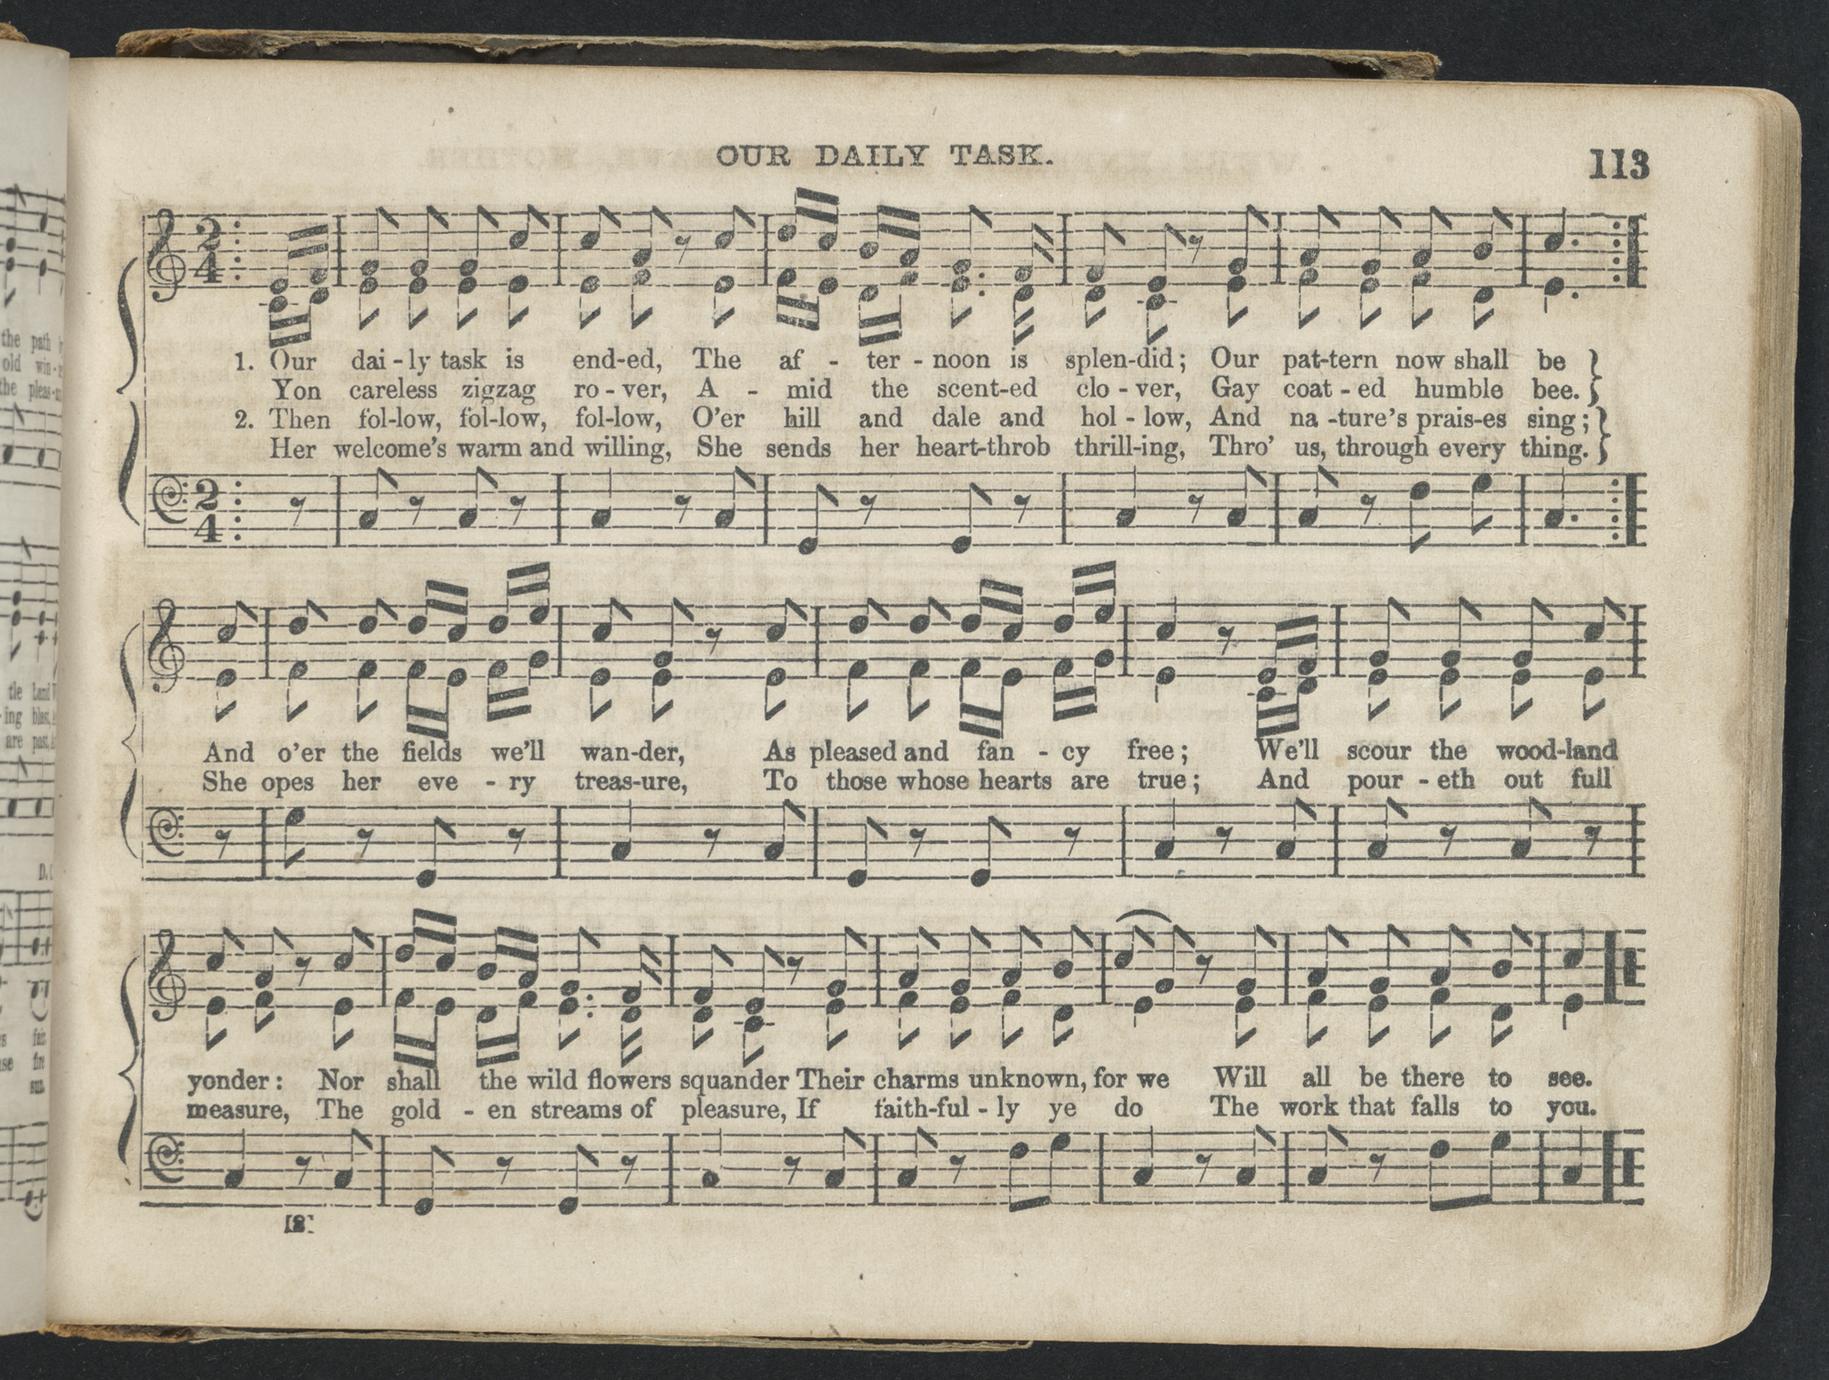 OUR DAILY TASK.
113
1. Our dai - ly task is end-ed, The af - ter - noon is splen-did; Our pat-tern now shall be
Yon careless zigzag ro - ver, A - mid the scent-ed clo - ver, Gay coat - ed humble bee.
2. Then fol-low, fol-low, fol-low, O'er hill and dale and hol - low, And na - ture's prais-es sing;
Her welcome's warm and willing, She sends her heart-throb thrill-ing, Thro' us, through every thing.
And o'er the fields we'll wan-der, As pleased and fan - cy free; We'll scour the wood-land
She opes her eve - ry treas-ure, To those whose hearts are true; And pour - eth out full
yonder: Nor shall the wild flowers squander Their charms unknown, for we Will all be there to see.
measure, The gold - en streams of pleasure, If faith-ful - ly ye do The work that falls to you.
[8]